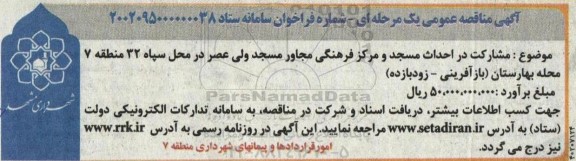 آگهی مناقصه عمومی یک مرحله ای - شماره فراخوان سامانه ستاد ۲۰۰۲۰۹۵۰۰۰۰۰۰۰۳۸
موضوع : مشارکت در احداث مسجد و مرکز فرهنگی مجاور مسجد ولی عصر در محل سپاه ۳۲ منطقه ۷
محله بهارستان (بازآفرینی - زودبازده)
مبلغ برآورد : ۵۰,۰۰۰,۰۰۰,۰۰۰ ریال
جهت کسب اطلاعات بیشتر، دریافت اسناد و شرکت در مناقصه، به سامانه تدارکات الکترونیکی دولت
(ستاد) به آدرس www.setadiran.ir مراجعه نمایید. این آگهی در روزنامه رسمی به آدرس www.rrk.ir
نیز درج می گردد.
امور قراردادها و پیمانهای شهرداری منطقه ۷
ParsNamadData